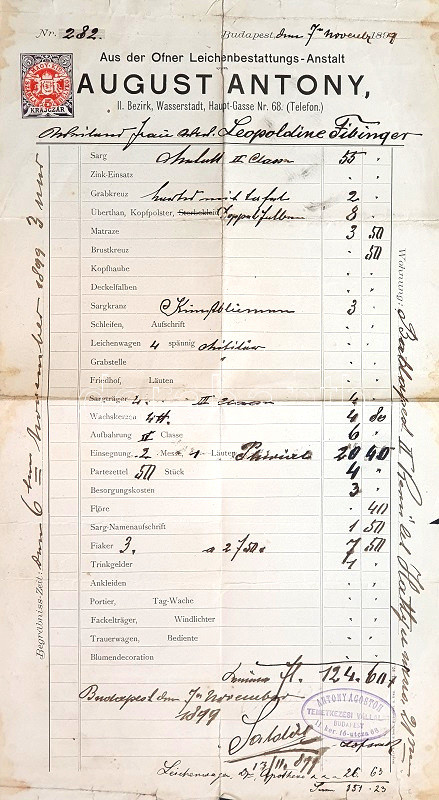 Nr. 282.
Budapest, den 7ten November 1899
Aus der Ofner Leichenbestattungs-Anstalt
von
AUGUST ANTONY,
II. Bezirk, Wasserstadt, Haupt-Gasse Nr. 68. (Telefon.)
KRAJCZÁR
Weiland Frau Leopoldine Fibinger
Sarg II Classe 55 "
Zink-Einsatz
Grabkreuz mit Tafel 2 "
Überthan, Kopfpolster, Sterbekleid 8 "
Matraze 3 50
Brustkreuz 50
Kopfhaube
Deckelfalben
Sargkranz Kunstblumen 3 "
Schleifen, Aufschrift
Leichenwagen 4 spännig
Grabstelle
Friedhof, Läuten
Sargträger 4. III Classe 4 "
Wachskerzen 4 80
Aufbahrung Classe 6 "
Einsegnung 2 Messe, Läuten 20 40
Partezettel 50 Stück 4 "
Besorgungskosten 3 "
Flöre 40
Sarg-Namenaufschrift 1 50
Fiaker 3. a 2/50 7 50
Trinkgelder 1 "
Ankleiden
Portier, Tag-Wache
Fackelträger, Windlichter
Trauerwagen, Bediente
Blumendecoration
Summe fl. 124.60
Budapest den 7ten November
1899
ANTONY ÁGOSTON
TEMETKEZÉSI VÁLLAL.
BUDAPEST
II. ker. fő-utcza 68
Saldirt
13/11 899
Leichenwagen 26 63
Sum 151.23
Begräbniss-Zeit: den 6ten November 1899 3 Uhr
Wohnung: Budapest II